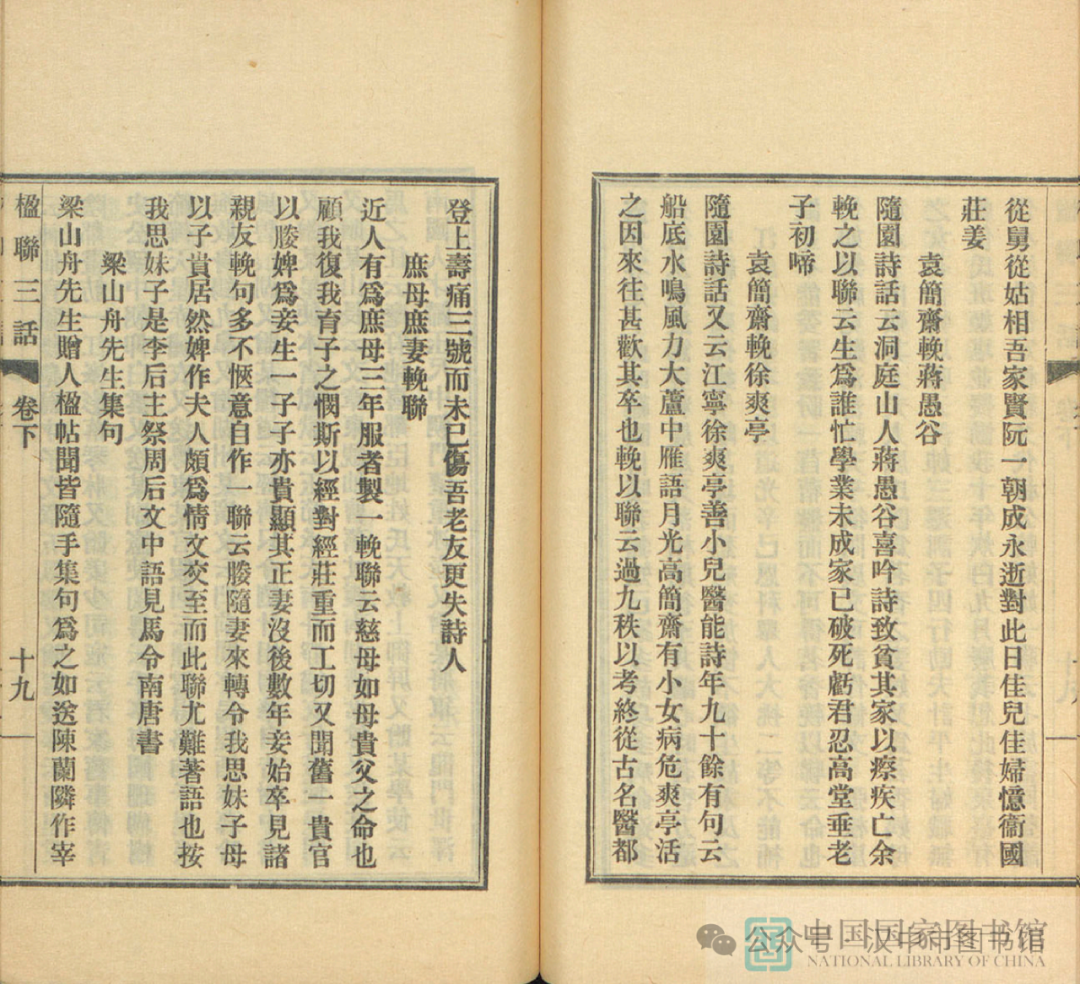 從舅從姑相吾家賢阮一朝成永逝對此日佳兒佳婦憶衞國
莊姜
袁簡齋輓蔣愚谷
隨園詩話云洞庭山人蔣愚谷喜吟詩致貧其家以瘵疾亡余
輓之以聯云生爲誰忙學業未成家已破死虧君忍高堂垂老
子初啼
袁簡齋輓徐爽亭
隨園詩話又云江寧徐爽亭善小兒醫能詩年九十餘有句云
船底水鳴風力大蘆中雁語月光高簡齋有小女病危爽亭活
之因來往甚歡其卒也輓以聯云過九秩以考終從古名醫都
登上壽痛三號而未已傷吾老友更失詩人
庶母庶妻輓聯
近人有爲庶母三年服者製一輓聯云慈母如母貴父之命也
顧我復我育子之憫斯以經對經莊重而工切又聞舊一貴官
以媵婢爲妾生一子子亦貴顯其正妻沒後數年妾始卒見諸
親友輓句多不愜意自作一聯云媵隨妻來轉令我思妹子母
以子貴居然婢作夫人頗爲情文交至而此聯尤難著語也按
我思妹子是李后主祭周后文中語見馬令南唐書
梁山舟先生集句
梁山舟先生贈人楹帖聞皆隨手集句爲之如送陳蘭隣作宰
楹聯三話 卷下 十九
中国国家图书馆
NATIONAL LIBRARY OF CHINA
公众号·汉中市图书馆